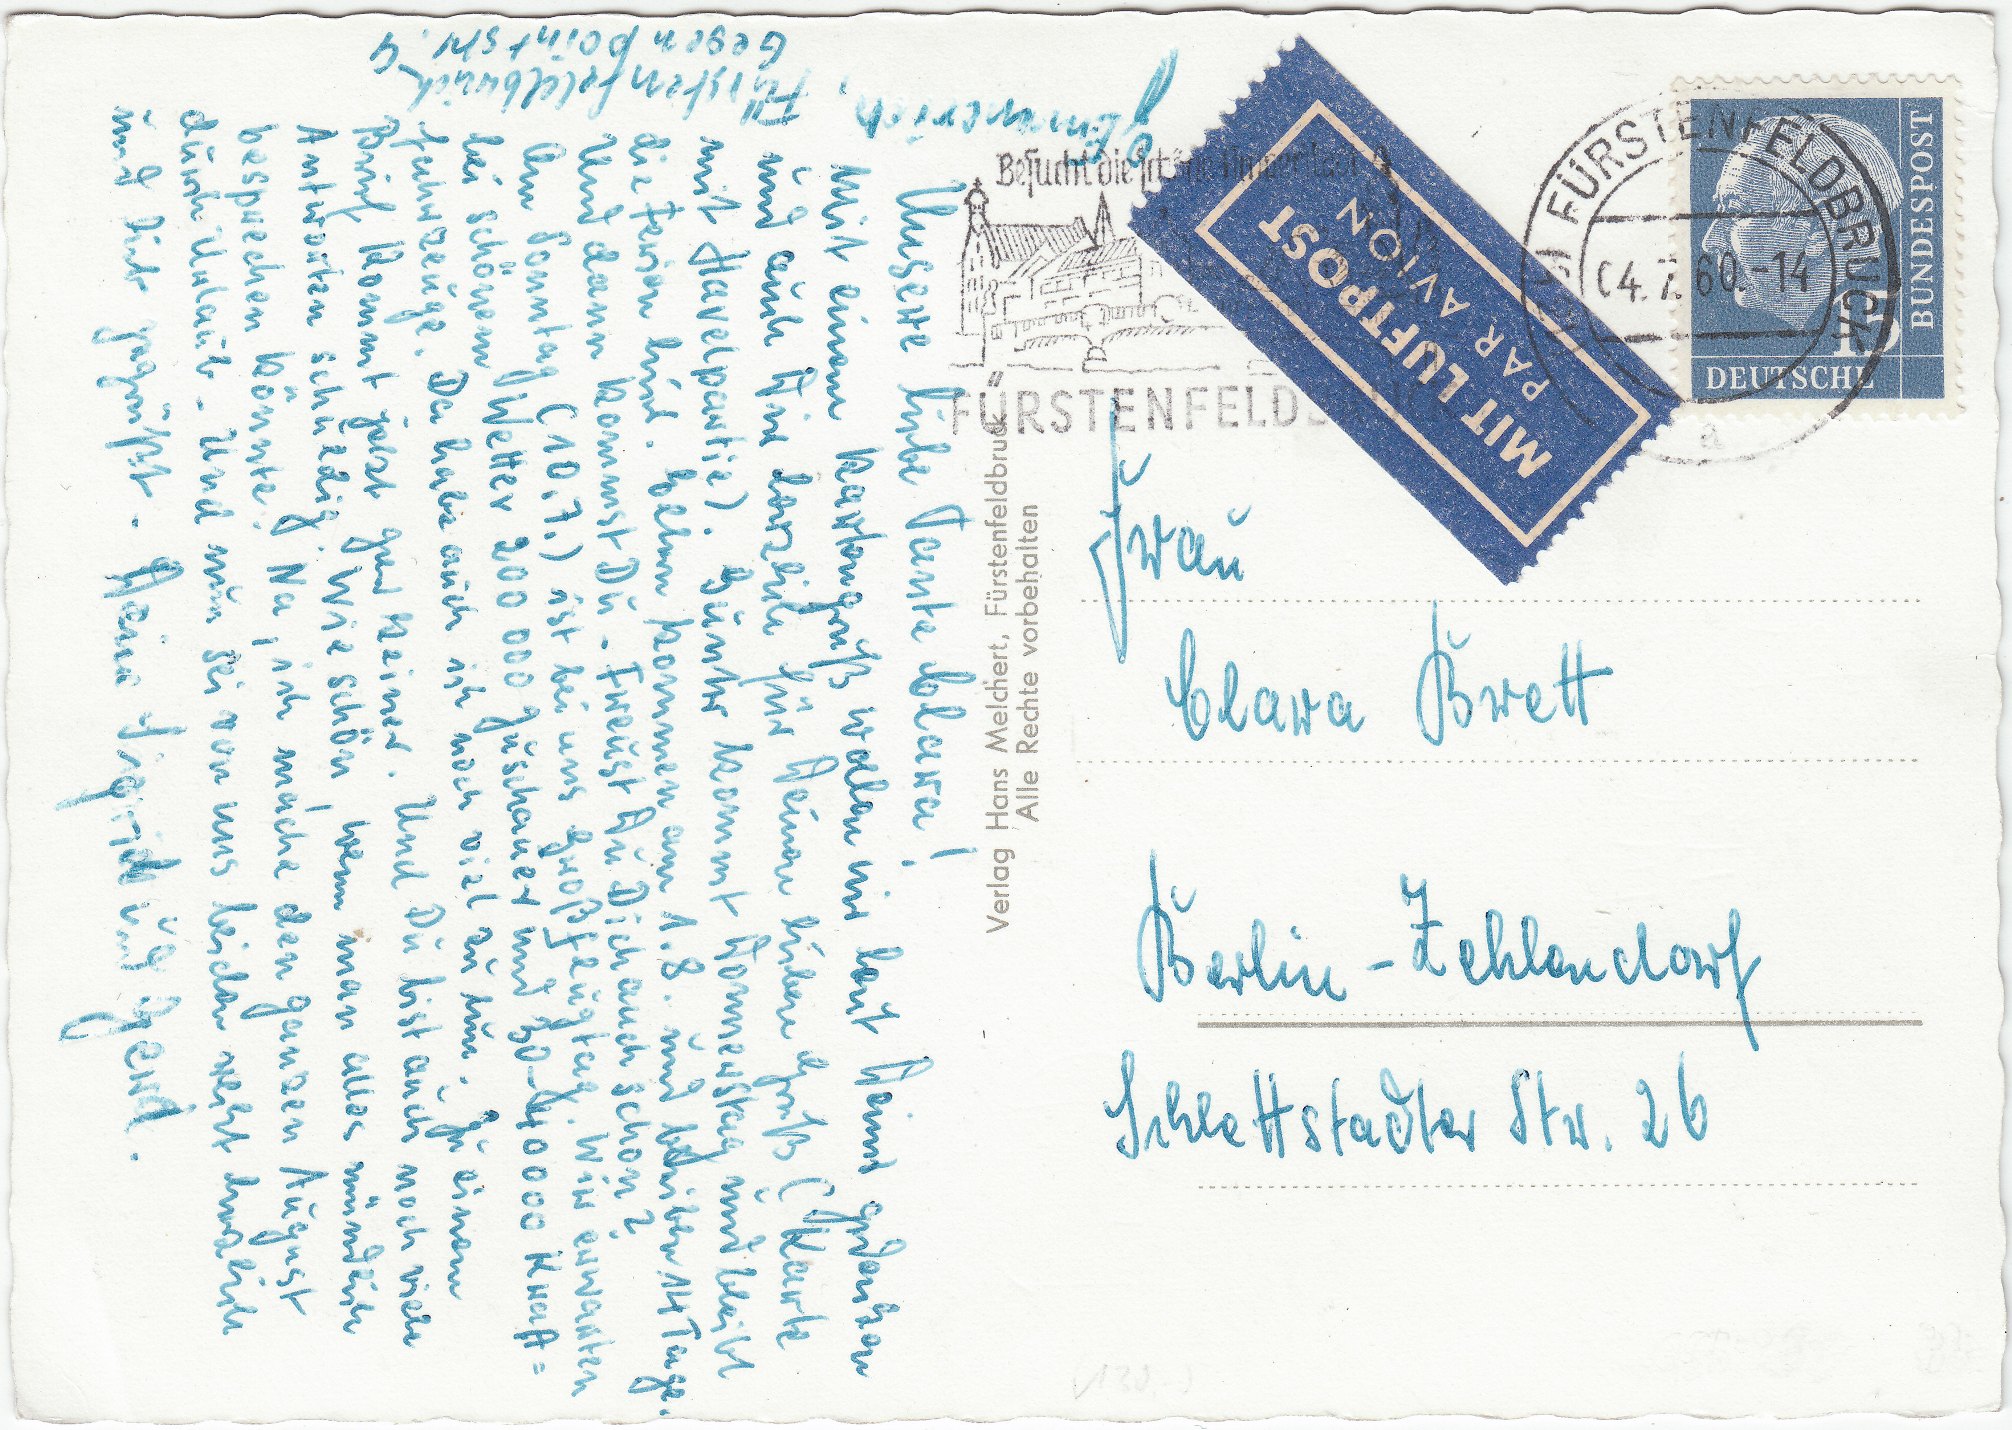 Emmerich, Fürstenfeldbruck
Gegenpointstr. 4
Unsere liebe Tante Clara!
Mit einem Kartengruß wollen wir heut Deiner gedenken
und auch Dir herzlich für Deinen lieben Gruß (Karte
mit Havelpartie). Günter kommt Donnerstag und bleibt
die Ferien hier. Eltern kommen am 1.8. und bleiben 14 Tage.
Und dann kommst Du. Freust Du Dich auch schon?
Am Sonntag (10.7.) ist bei uns Großflugtag. Wir erwarten
bei schönem Wetter 200 000 Zuschauer und 30-40000 Kraft=
fahrzeuge. Da habe auch ich noch viel zu tun. Zu einem
Brief kommt jetzt gar keiner. Und Du bist auch noch viele
Antworten schuldig. Wie schön wenn man alles mündlich
besprechen könnte. Na, ich mache den ganzen August
durch Urlaub. Und nun sei von uns beiden recht herzlich
und lieb gegrüßt. Deine Sigrid und Gerd.
Besucht die schöne
FÜRSTENFELDB
MIT LUFTPOST
PAR AVION
FÜRSTENFELDBRUCK
04.7.60.-14
a
DEUTSCHE
BUNDESPOST
15
Verlag Hans Melchert, Fürstenfeldbruck
Alle Rechte vorbehalten
Frau
Clara Brett
Berlin-Zehlendorf
Schlettstadter Str. 26